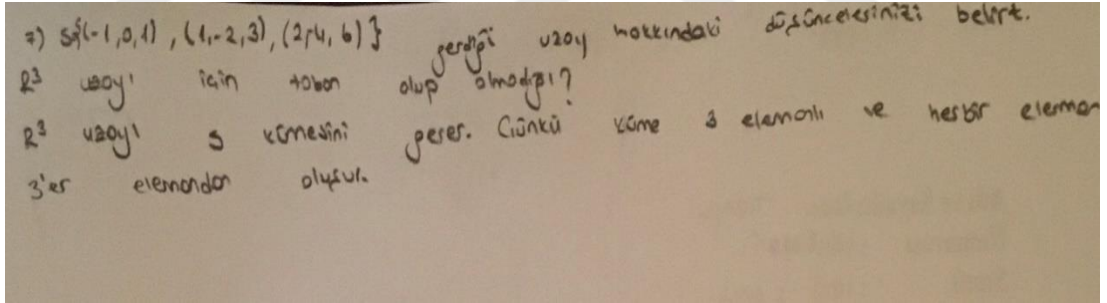 7) S={(-1,0,1), (1,-2,3), (2,-4,6)} gerdiği uzay hakkındaki düşüncelerinizi belirt.
R³ uzayı için taban olup olmadığı?
R³ uzayı S kümesini gerer. Çünkü küme 3 elemanlı ve herbir eleman
3'er elemandan oluşur.